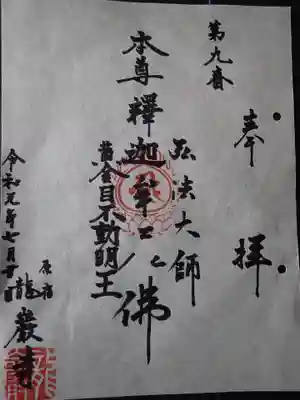 第九番
奉拝
弘法大師
本尊釋迦牟尼佛
黄金目不動明王
令和元年七月廿日
原宿
龍巌寺